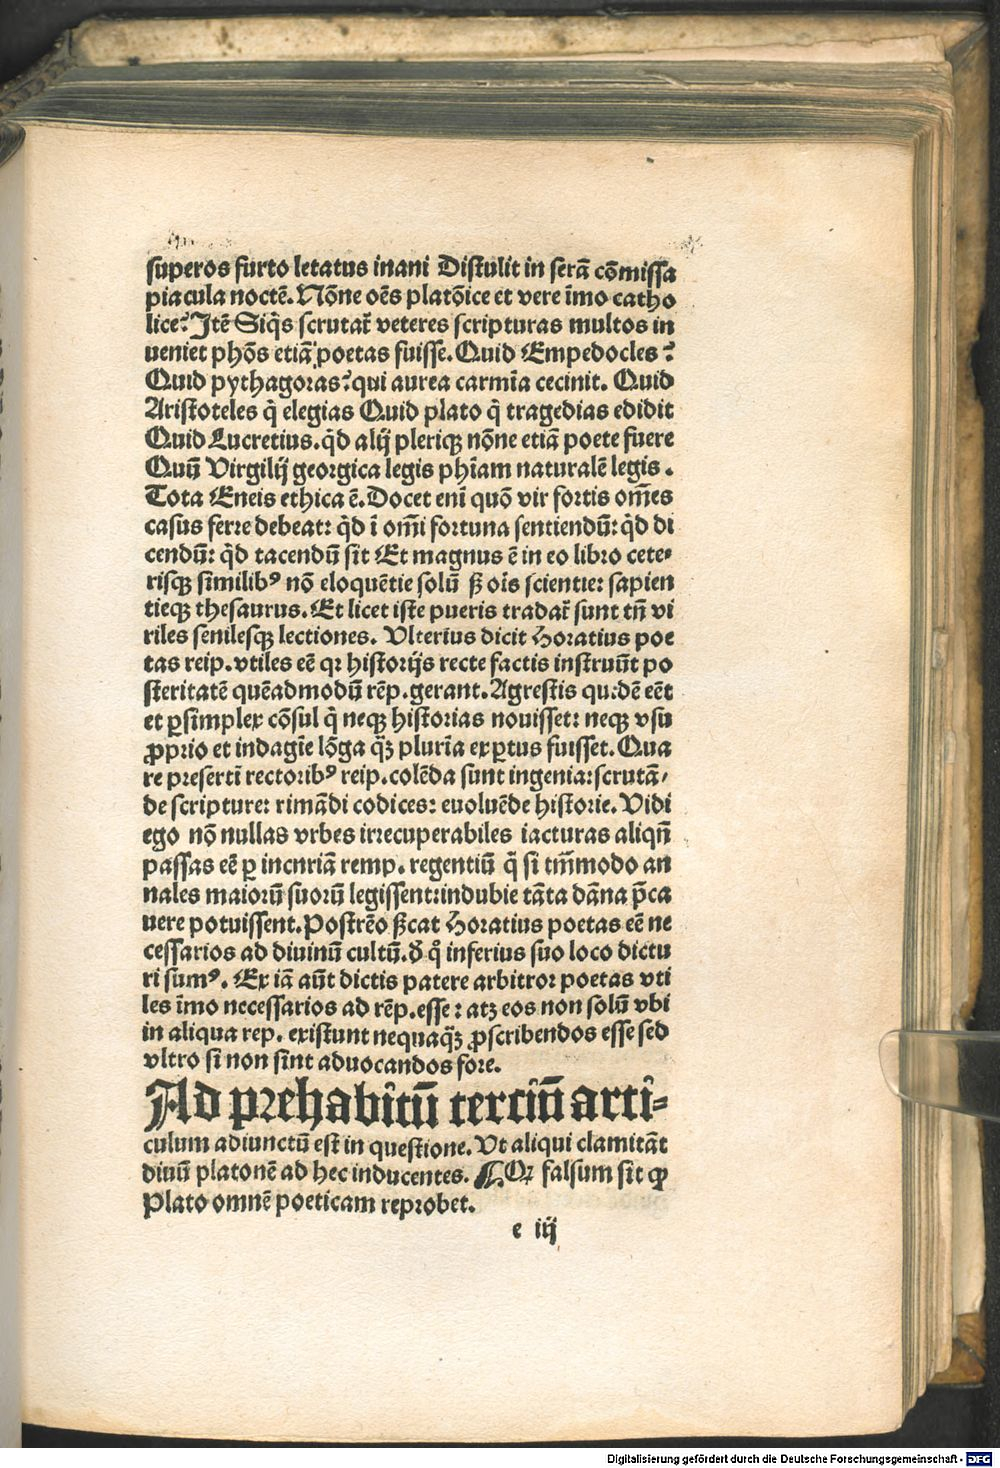 superos furto letatus inani Distulit in serā cōmissa
piacula noctē. Nōne oēs platōice et vere īmo catho
lice? Itē Siq̄s scrutat᷑ veteres scripturas multos in
ueniet phōs etiā poetas fuisse. Quid Empedocles?
Quid pythagoras? qui aurea carmīa cecinit. Quid
Aristoteles q̄ elegias Quid plato q̄ tragedias edidit
Quid Lucretius. qd̄ alij pleriqꝫ nōne etiā poete fuere
Quū Virgilij georgica legis phīam naturalē legis.
Tota Eneis ethica ē. Docet enī quō vir fortis om̄es
casus ferre debeat: qd̄ ī om̄i fortuna sentiendū: qd̄ di
cendū: qd̄ tacendū sit Et magnus ē in eo libro cete-
risqꝫ similibꝰ nō eloquētie solū ꝭ ois̄ scientie: sapien
tieqꝫ thesaurus. Et licet iste pueris tradat᷑ sunt tn̄ vi
riles senilesqꝫ lectiones. Vlterius dicit Horatius poe
tas reip. vtiles eē qꝛ historijs recte factis instruūt po
steritatē quēadmodū rēp. gerant. Agrestis quidē eēt
et ꝑsimplex cōsul q̄ neqꝫ historias nouisset: neqꝫ vsu
ꝓprio et indagīe lōga qꝫ̄ plurīa exꝑtus fuisset. Qua
re presertī rectoribꝰ reip. colēda sunt ingenia: scrutā-
de scripture: rimādi codices: euoluēde historie. Vidi
ego nō nullas vrbes irrecuperabiles iacturas aliqn̄
passas eē ꝑ incnriā remp. regentiū q̄ si tm̄modo an
nales maiorū suorū legissent: indubie tāta dāna p̄ca
uere potuissent. Postrēo p̄dicat Horatius poetas eē ne
cessarios ad diuinū cultū. ꝺ qͦ inferius suo loco dictu
ri sumꝰ. Ex iā aūt dictis patere arbitror poetas vti
les īmo necessarios ad rēp. esse: atqꝫ eos non solū vbi
in aliqua rep. existunt nequaqꝫ̄ ꝓscribendos esse sed
vltro si non sint aduocandos fore.
Ad prehabitū tertiū arti-
culum adiunctū est in questione. Vt aliqui clamitāt
diuū platonē ad hec inducentes. ¶ Qꝛ falsum sit ꝙ
Plato omnē poeticam reprobet.
e iij
Digitalisierung gefördert durch die Deutsche Forschungsgemeinschaft - DFG